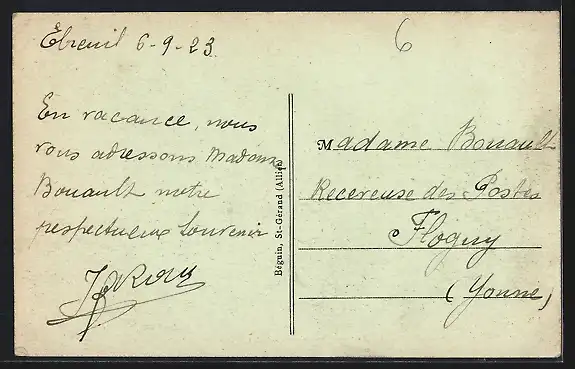 Ébreuil 6-9-23
6
En vacance, nous
vous adressons Madame
Bouault notre
respectueux Souvenir
Béguin, St-Gérand (Allier)
Madame Bouault
Receveuse des Postes
Flogny
(Yonne)